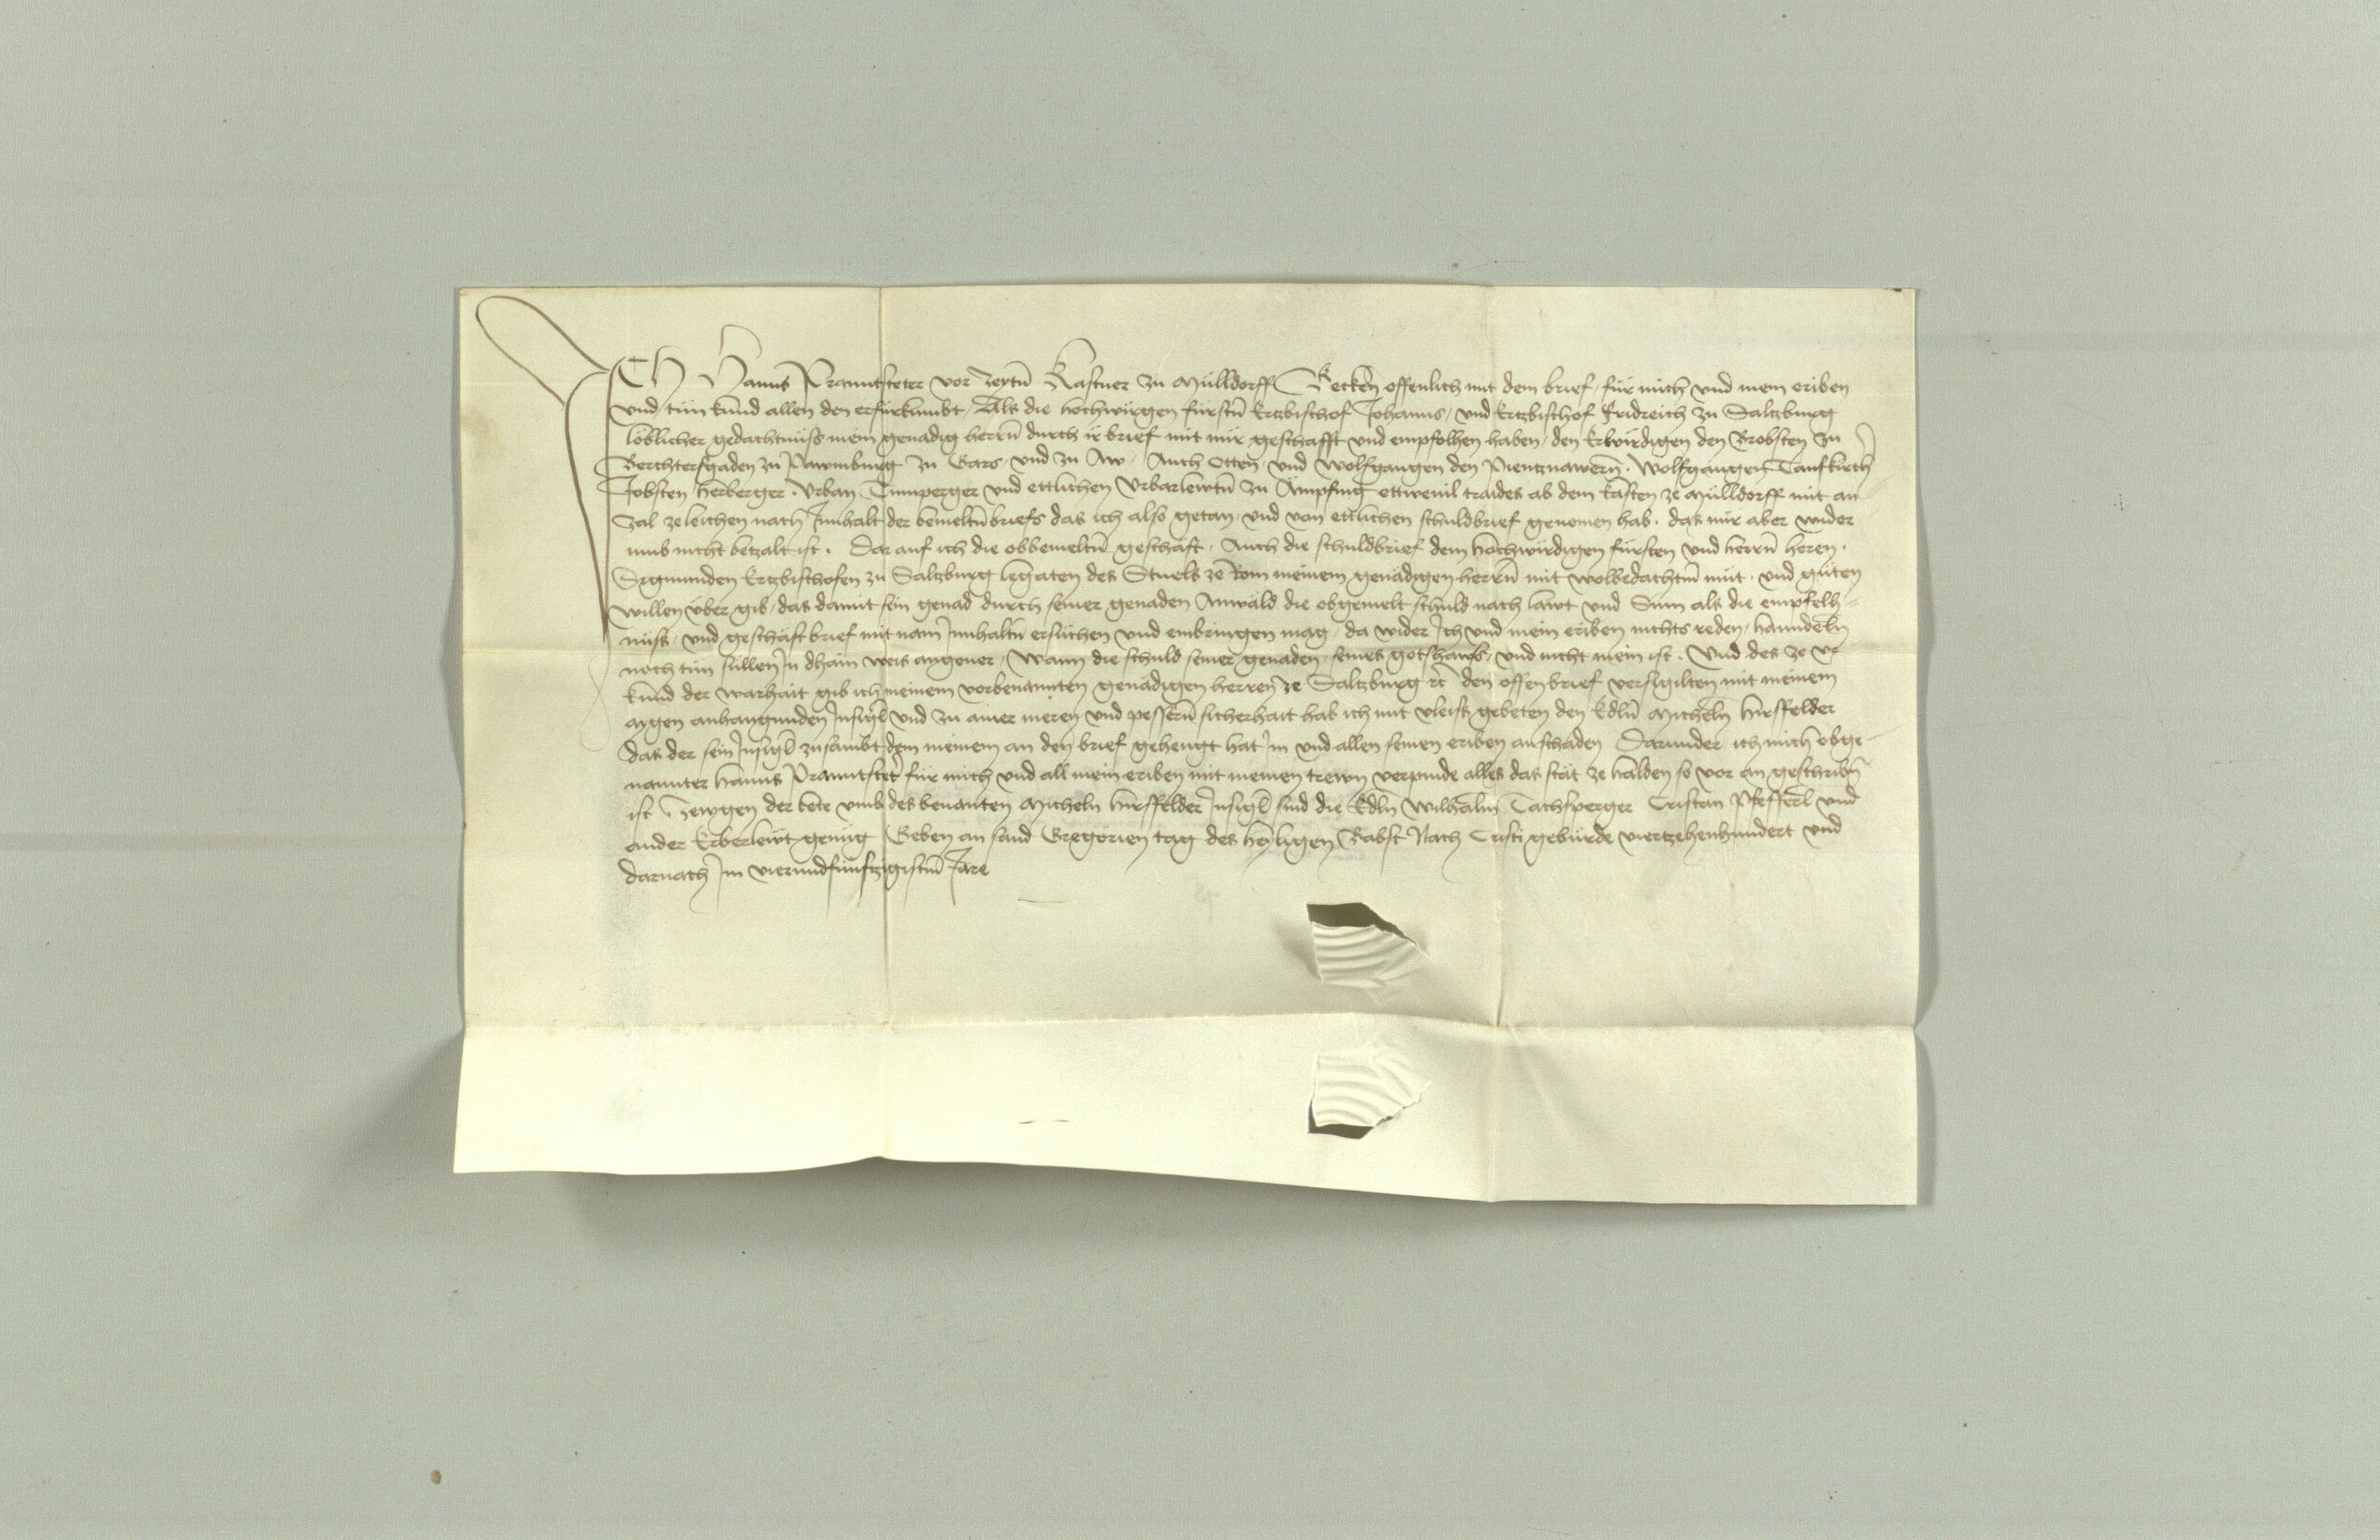 ICh Hanns Pranntsteter vor zeytn̄ Kastner zu Mülldorff Bekenn offenlich mit dem brief / für mich und mein eriben
und tün kund allen den er fürkumbt / Als die hochwirgen fürstn̄ Ertzbischof Johanns / und Ertzbischof Fridreich zu Saltzburg
löblicher gedachtnüss mein genadig herrn̄ durch ir brief mit mir geschafft und empfolhen haben / den Erwirdigen den Brobsten zu
Berchtersgaden zu Pawmburg zu Gars / und zu Aw / Auch Otten / und Wolfgangen den Pientznawern̄ . Wolfgangen Taufkirch̄
Jobsten herberger . Urban Trunperger und ettlichen Urbarlewtn̄ zu Ampfing ettwevil traides ab dem kasten ze Mülldorff mit an
zal ze leichen nach Innhalt der bemeltn̄ briefs das ich also getan / und von ettlichen schuldbrief genomen hab . das mir aber wider
umb nicht betzalt ist . Dar auf ich die obbemeltn̄ geschäft / Auch die schuldbrief dem hochwirdigen fürsten und herrn̄ heren .
Sigmunden Ertzbischofen zu Saltzburg legaten des Stuels ze Rom meinem genädigen herrn̄ mit wolbedachtm̄ müt . und güten
willen über gib / das damit sein genad durch seiner genaden Anwäld die obgemelt schuld nach lawt und Sum als die empfelh=
nüss / und geschäft brief mit nam Innhaltn̄ ersüchen und einbringen mag / da wider Ich und mein eriben nichts reden / hanndeln
noch tün süllen In dhain weis angever / Wann die schuld seiner genaden / seines gotshaws / und nicht mein ist . Und des ze ur
kund der warhait gib ich meinem vorbenannten genädigen herren ze Saltzburg rc̄ den offen brief versigilten mit meinem
aygen anhangunden Insigl̄ und zu ainer meren und pessern̄ sicherhait hab ich mit vleiss gebeten den Edln̄ Micheln hirsfelder
das der sein Insigl̄ zu sambt dem meinem an den brief gehengt hat Im und allen seinen eriben an schaden Darunder ich mich obge=
nannter hanns Pranntstet̄ für mich und all mein eriben mit meinen trewn verpinde alles das stät ze halden so vor an geschribn̄
ist Zewgen der bete umb des benanten Micheln hirsfelder Insigl̄ sind die Edln̄ Wilhalm Tachsperger Cristan Pfefferl und
ander Erberlewt genüg Geben an sand Gregorien tag des heyligen Babst Nach Cristi gebürde viertzehenhundert und
darnach Im vierundfunftzigistm̄ Jare